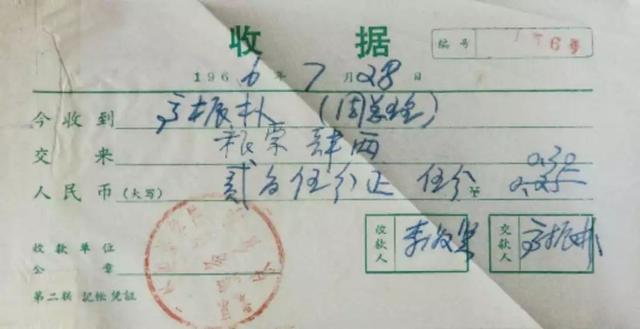 收 据
编号
1966年7月28日
今收到 高振朴 (周总理)
交来 粮票 肆两
人民币(大写) 贰角伍分正 伍分 ¥ 0.30 0.25
收款单位
公章
收款人
交款人 高振朴
第二联 记帐凭证